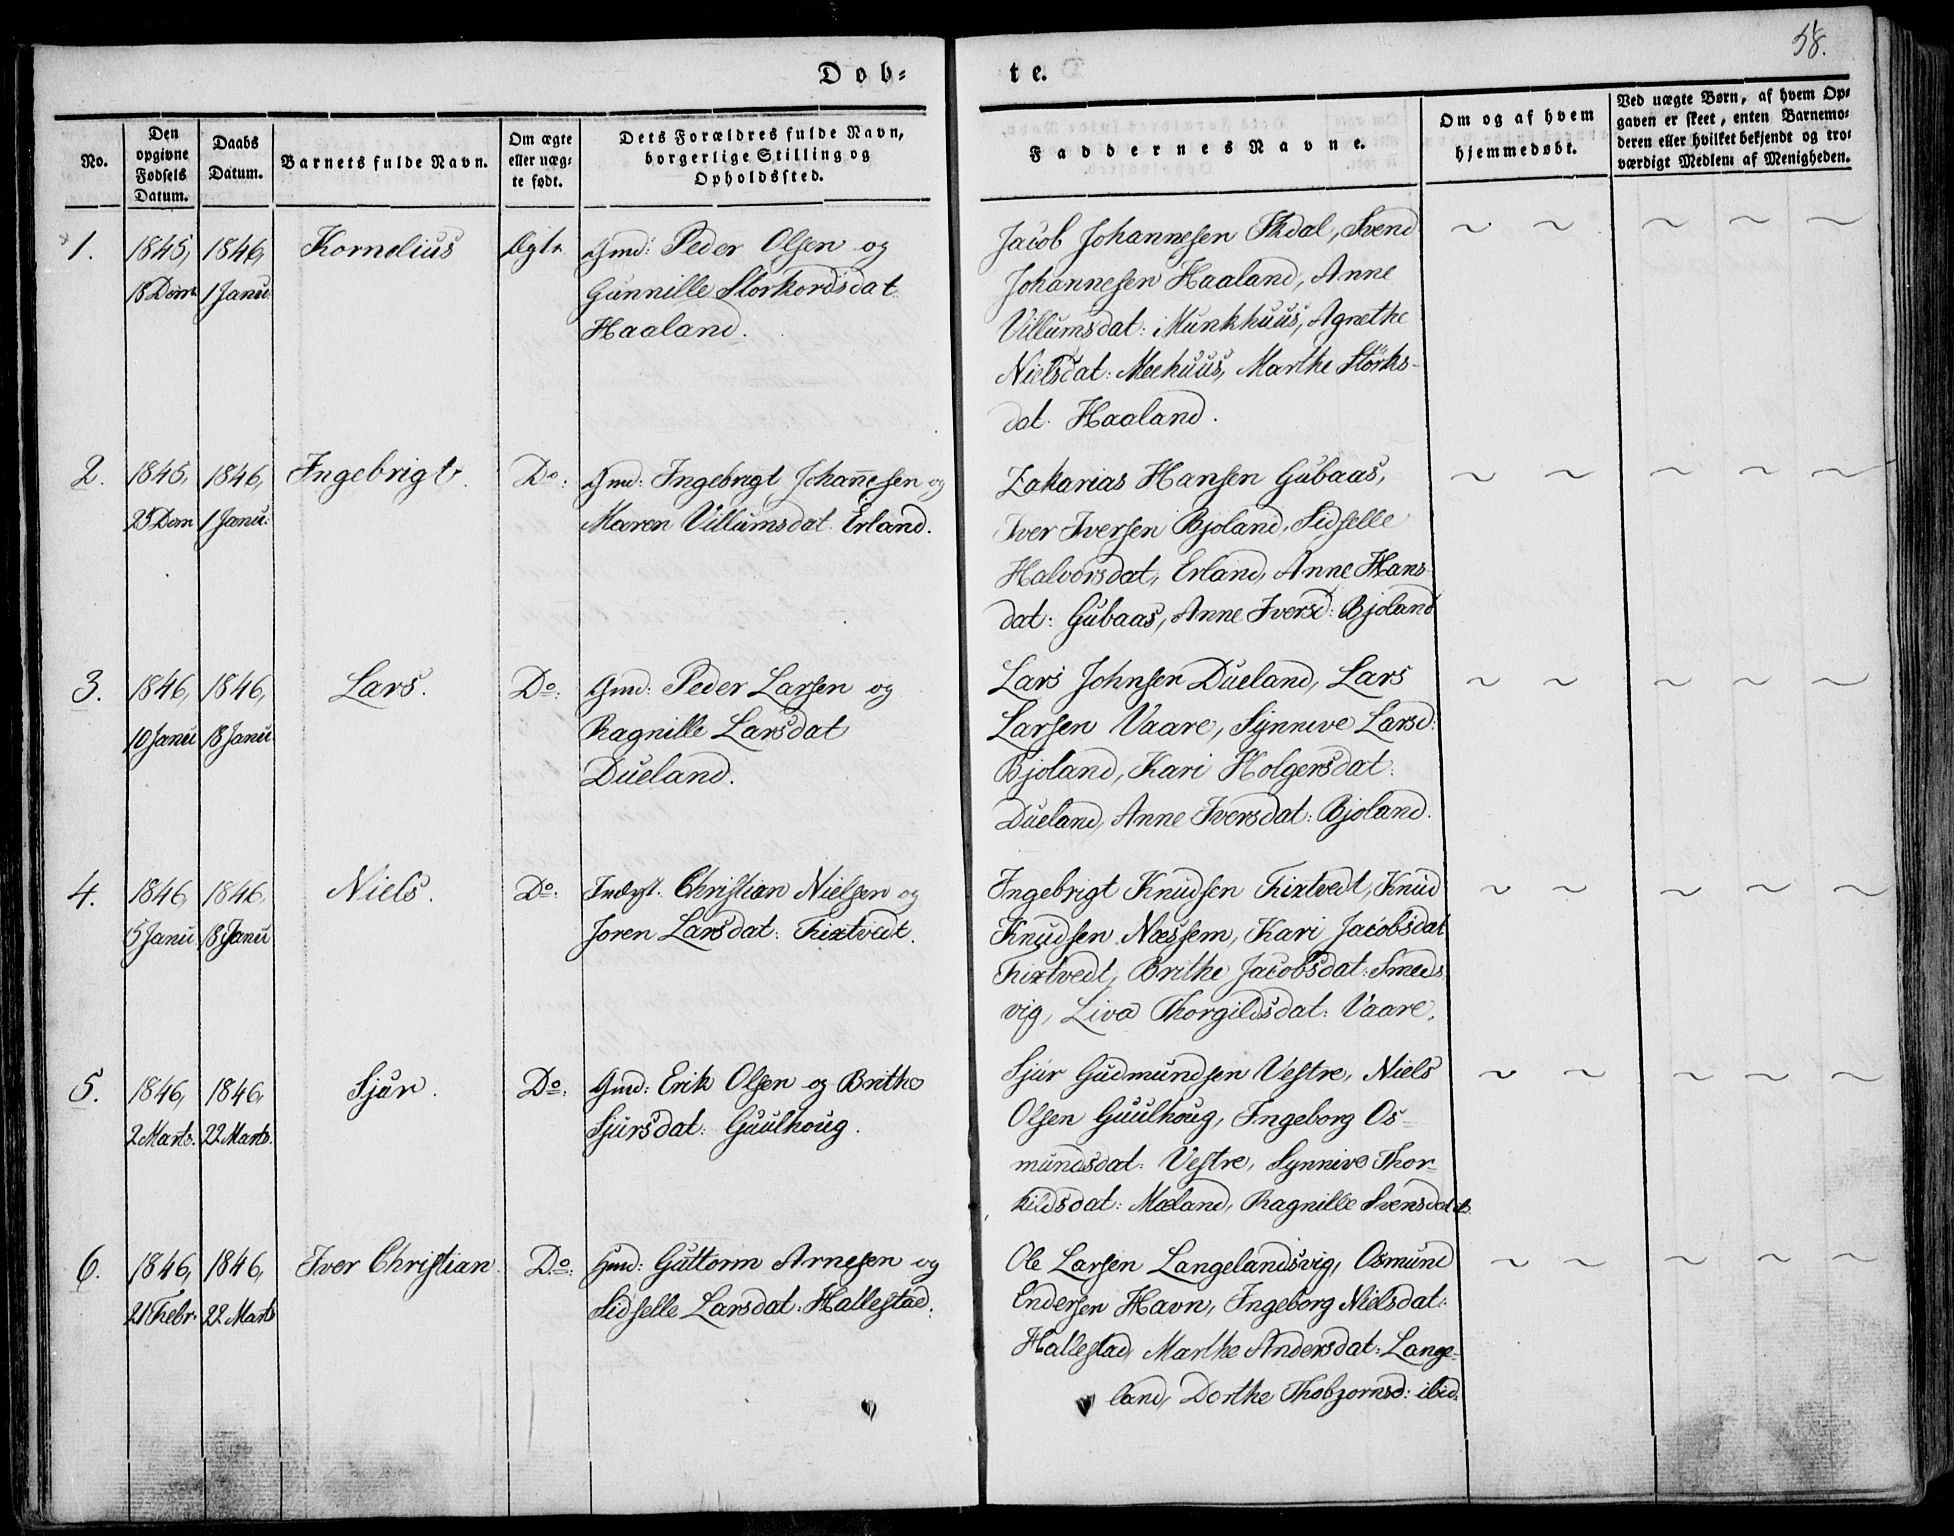 58.
Døb=
te.
No.
Den opgivne Fødsels Datum.
Daabs Datum.
Barnets fulde Navn.
Om ægte eller uæg= te født.
Dets Forældres fulde Navn, borgerlige Stilling og Opholdssted.
Faddernes Navne.
Om og af hvem hjemmedøbt.
Ved uægte Børn, af hvem Op= gaven er skeet, enten Barnemo= deren eller hvilket bekjendt og tro= værdigt Medlem af Menigheden.
1.
1845,
1846,
Kornelius
Ægte
Gmd: Peder Olsen og
1 Janu:
Gunnille Storkordsdat
Haaland.
Jacob Johannesen Skdal, Svend
Johannesen Haaland, Anne
Villumsdat: Munkhuus, Agnethe
Nielsdat: Meehuus, Marthe Störks-
dat. Haaland.
2.
1845,
1846,
Ingebrigt.
Do:
Gmd: Ingebrigt Johan̄esen og
1 Janu:
Maren Villumsdat. Erland.
Zakarias Hansen Gubaas,
Iver Iversen Bjoland, Sidselle
Halvorsdat, Erland, Anne Hans
dat: Gubaas, Anne Iversd: Bjoland
3.
1846,
1846,
Lars.
Do:
Gmd: Peder Larsen og
10 Janu
18 Janu
Ragnille Larsdat
Dueland.
Lars Johnsen Dueland, Lars
Larsen Vaare, Synneve Larsd:
Bjoland, Kari Holgersdat:
Dueland, Anne Iversdat: Bjoland.
4.
1846,
1846,
Niels.
Do:
Inderst. Christian Nielsen og
5 Janu
18 Janu
Joren Larsdat: Tixtvedt.
Ingebrigt Knudsen Tixtvedt, Knud
Knudsen Næssem, Kari Jacobsdat
Tixtvedt, Brithe Jacobsdat: Smeds
vig, Liva Thorgildsdat: Vaare.
5.
1846,
1846,
Sjur.
Do:
Gmd: Erik Olsen og Brithe
2 Marts.
22 Marts.
Sjursdat: Guulhoug.
Sjur Gudmundsen Vestre, Niels
Olsen Guulhoug, Ingeborg Os-
mundsdat: Vestre, Synnive Thor-
kildsdat: Mæland, Ragnille Svensdat
6.
1846,
1846,
Iver Christian
Do:
Gmd: Guttorm Arnesen og
21 Febr.
22 Marts
Sidselle Larsdat: Hallestad.
Ole Larsen Langelandsvig, Osmund
Endersen Havn, Ingeborg Nielsdat:
Hallestad, Marthe Andersdat: Lange-
land, Dorthe Thobjornsd: ibid.